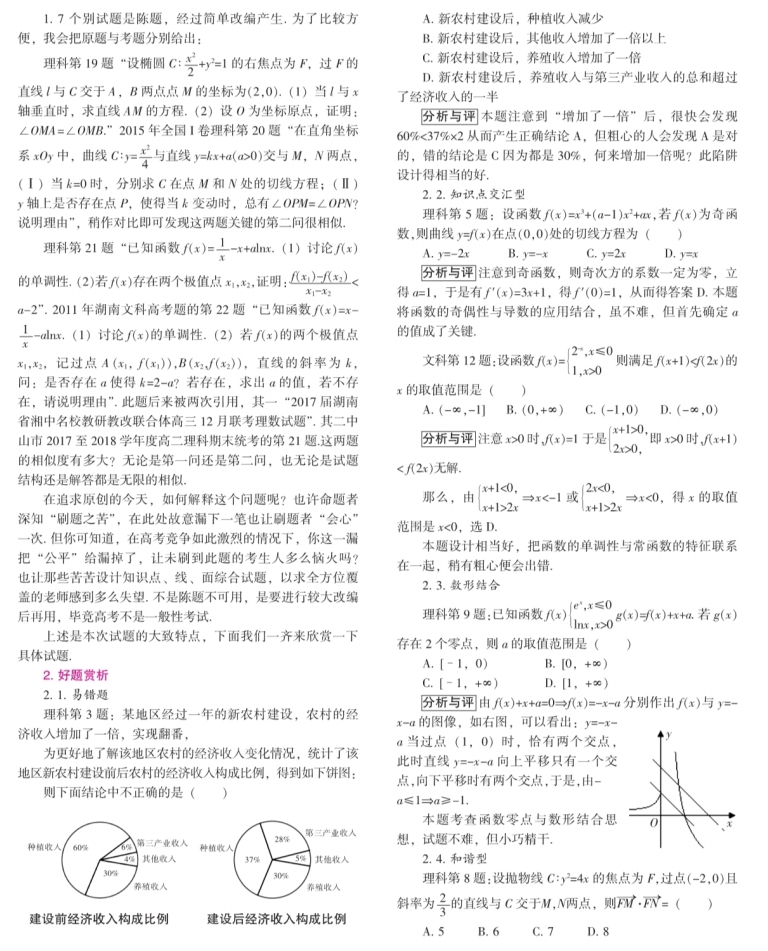 1. 7个别试题是陈题，经过简单改编产生. 为了比较方
便，我会把原题与考题分别给出：
理科第 19 题“设椭圆 C: x²/2+y²=1 的右焦点为 F，过 F 的
直线 l 与 C 交于 A，B 两点点 M 的坐标为(2,0). (1) 当 l 与 x
轴垂直时，求直线 AM 的方程. (2) 设 O 为坐标原点，证明：
∠OMA=∠OMB.” 2015 年全国 I 卷理科第 20 题“在直角坐标
系 xOy 中，曲线 C:y=x²/4与直线 y=kx+a(a>0)交与 M，N 两点，
(Ⅰ) 当 k=0 时，分别求 C 在点 M 和 N 处的切线方程；(Ⅱ)
y 轴上是否存在点 P，使得当 k 变动时，总有∠OPM=∠OPN?
说明理由”，稍作对比即可发现这两题关键的第二问很相似.
理科第 21 题“已知函数 f(x)=1/x-x+alnx. (1) 讨论 f(x)
的单调性. (2)若 f(x)存在两个极值点 x₁,x₂,证明: (f(x₁)-f(x₂))/(x₁-x₂)<
a-2”. 2011 年湖南文科高考题的第 22 题“已知函数 f(x)=x-
1/x-alnx. (1) 讨论 f(x)的单调性. (2) 若 f(x)的两个极值点
x₁,x₂，记过点 A (x₁, f(x₁)),B(x₂,f(x₂))，直线的斜率为 k,
问：是否存在 a 使得 k=2-a? 若存在，求出 a 的值，若不存
在，请说明理由”. 此题后来被两次引用，其一“2017 届湖南
省湘中名校教研教改联合体高三 12 月联考理数试题”. 其二中
山市 2017 至 2018 学年度高二理科期末统考的第 21 题.这两题
的相似度有多大？无论是第一问还是第二问，也无论是试题
结构还是解答都是无限的相似.
在追求原创的今天，如何解释这个问题呢？也许命题者
深知“刷题之苦”，在此处故意漏下一笔也让刷题者“会心”
一次. 但你可知道，在高考竞争如此激烈的情况下，你这一漏
把“公平”给漏掉了，让未刷到此题的考生人多么恼火吗？
也让那些苦苦设计知识点、线、面综合试题，以求全方位覆
盖的老师感到多么失望. 不是陈题不可用，是要进行较大改编
后再用，毕竟高考不是一般性考试.
上述是本次试题的大致特点，下面我们一齐来欣赏一下
具体试题.
2. 好题赏析
2. 1. 易错题
理科第 3 题：某地区经过一年的新农村建设，农村的经
济收入增加了一倍，实现翻番，
为更好地了解该地区农村的经济收入变化情况，统计了该
地区新农村建设前后农村的经济收入构成比例，得到如下饼图：
则下面结论中不正确的是（　　）
种植收入 60% 6% 第三产业收入
4% 其他收入
30%
养殖收入
建设前经济收入构成比例
种植收入 37% 28% 第三产业收入
5% 其他收入
30%
养殖收入
建设后经济收入构成比例
A. 新农村建设后，种植收入减少
B. 新农村建设后，其他收入增加了一倍以上
C. 新农村建设后，养殖收入增加了一倍
D. 新农村建设后，养殖收入与第三产业收入的总和超过
了经济收入的一半
分析与评 本题注意到“增加了一倍”后，很快会发现
60%<37%×2 从而产生正确结论 A，但粗心的人会发现 A 是对
的，错的结论是 C 因为都是 30%，何来增加一倍呢？此陷阱
设计得相当的好.
2. 2. 知识点交汇型
理科第 5 题：设函数 f(x)=x³+(a-1)x²+ax,若 f(x)为奇函
数,则曲线 y=f(x)在点(0,0)处的切线方程为（　　）
A. y=-2x　B. y=-x　C. y=2x　D. y=x
分析与评 注意到奇函数，则奇次方的系数一定为零，立
得 a=1，于是有 f′(x)=3x+1，得 f′(0)=1，从而得答案 D. 本题
将函数的奇偶性与导数的应用结合，虽不难，但首先确定 a
的值成了关键.
文科第 12 题:设函数 f(x)={2⁻ˣ,x≤0
1,x>0 则满足 f(x+1)<f(2x)的
x 的取值范围是（　　）
A. (-∞,-1]　B. (0,+∞)　C. (-1,0)　D. (-∞,0)
分析与评 注意 x>0 时,f(x)=1 于是{x+1>0,
2x>0, 即 x>0 时,f(x+1)
<f(2x)无解.
那么，由{x+1<0,
x+1>2x ⇒x<-1 或{2x<0,
x+1>2x ⇒x<0，得 x 的取值
范围是 x<0，选 D.
本题设计相当好，把函数的单调性与常函数的特征联系
在一起，稍有粗心便会出错.
2. 3. 数形结合
理科第 9 题:已知函数 f(x){eˣ,x≤0
lnx,x>0 g(x)=f(x)+x+a. 若 g(x)
存在 2 个零点，则 a 的取值范围是（　　）
A. [-1，0)　B. [0，+∞)
C. [-1，+∞)　D. [1，+∞)
分析与评 由 f(x)+x+a=0⇒f(x)=-x-a 分别作出 f(x)与 y=-
x-a 的图像，如右图，可以看出：y=-x-
a 当过点（1，0）时，恰有两个交点，
此时直线 y=-x-a 向上平移只有一个交
点,向下平移时有两个交点,于是,由-
a≤1⇒a≥-1.
y
O x
本题考查函数零点与数形结合思
想，试题不难，但小巧精干.
2. 4. 和谐型
理科第 8 题:设抛物线 C:y²=4x 的焦点为 F,过点(-2,0)且
斜率为2/3的直线与 C 交于M,N两点，则FM→·FN→=（　　）
A. 5　B. 6　C. 7　D. 8